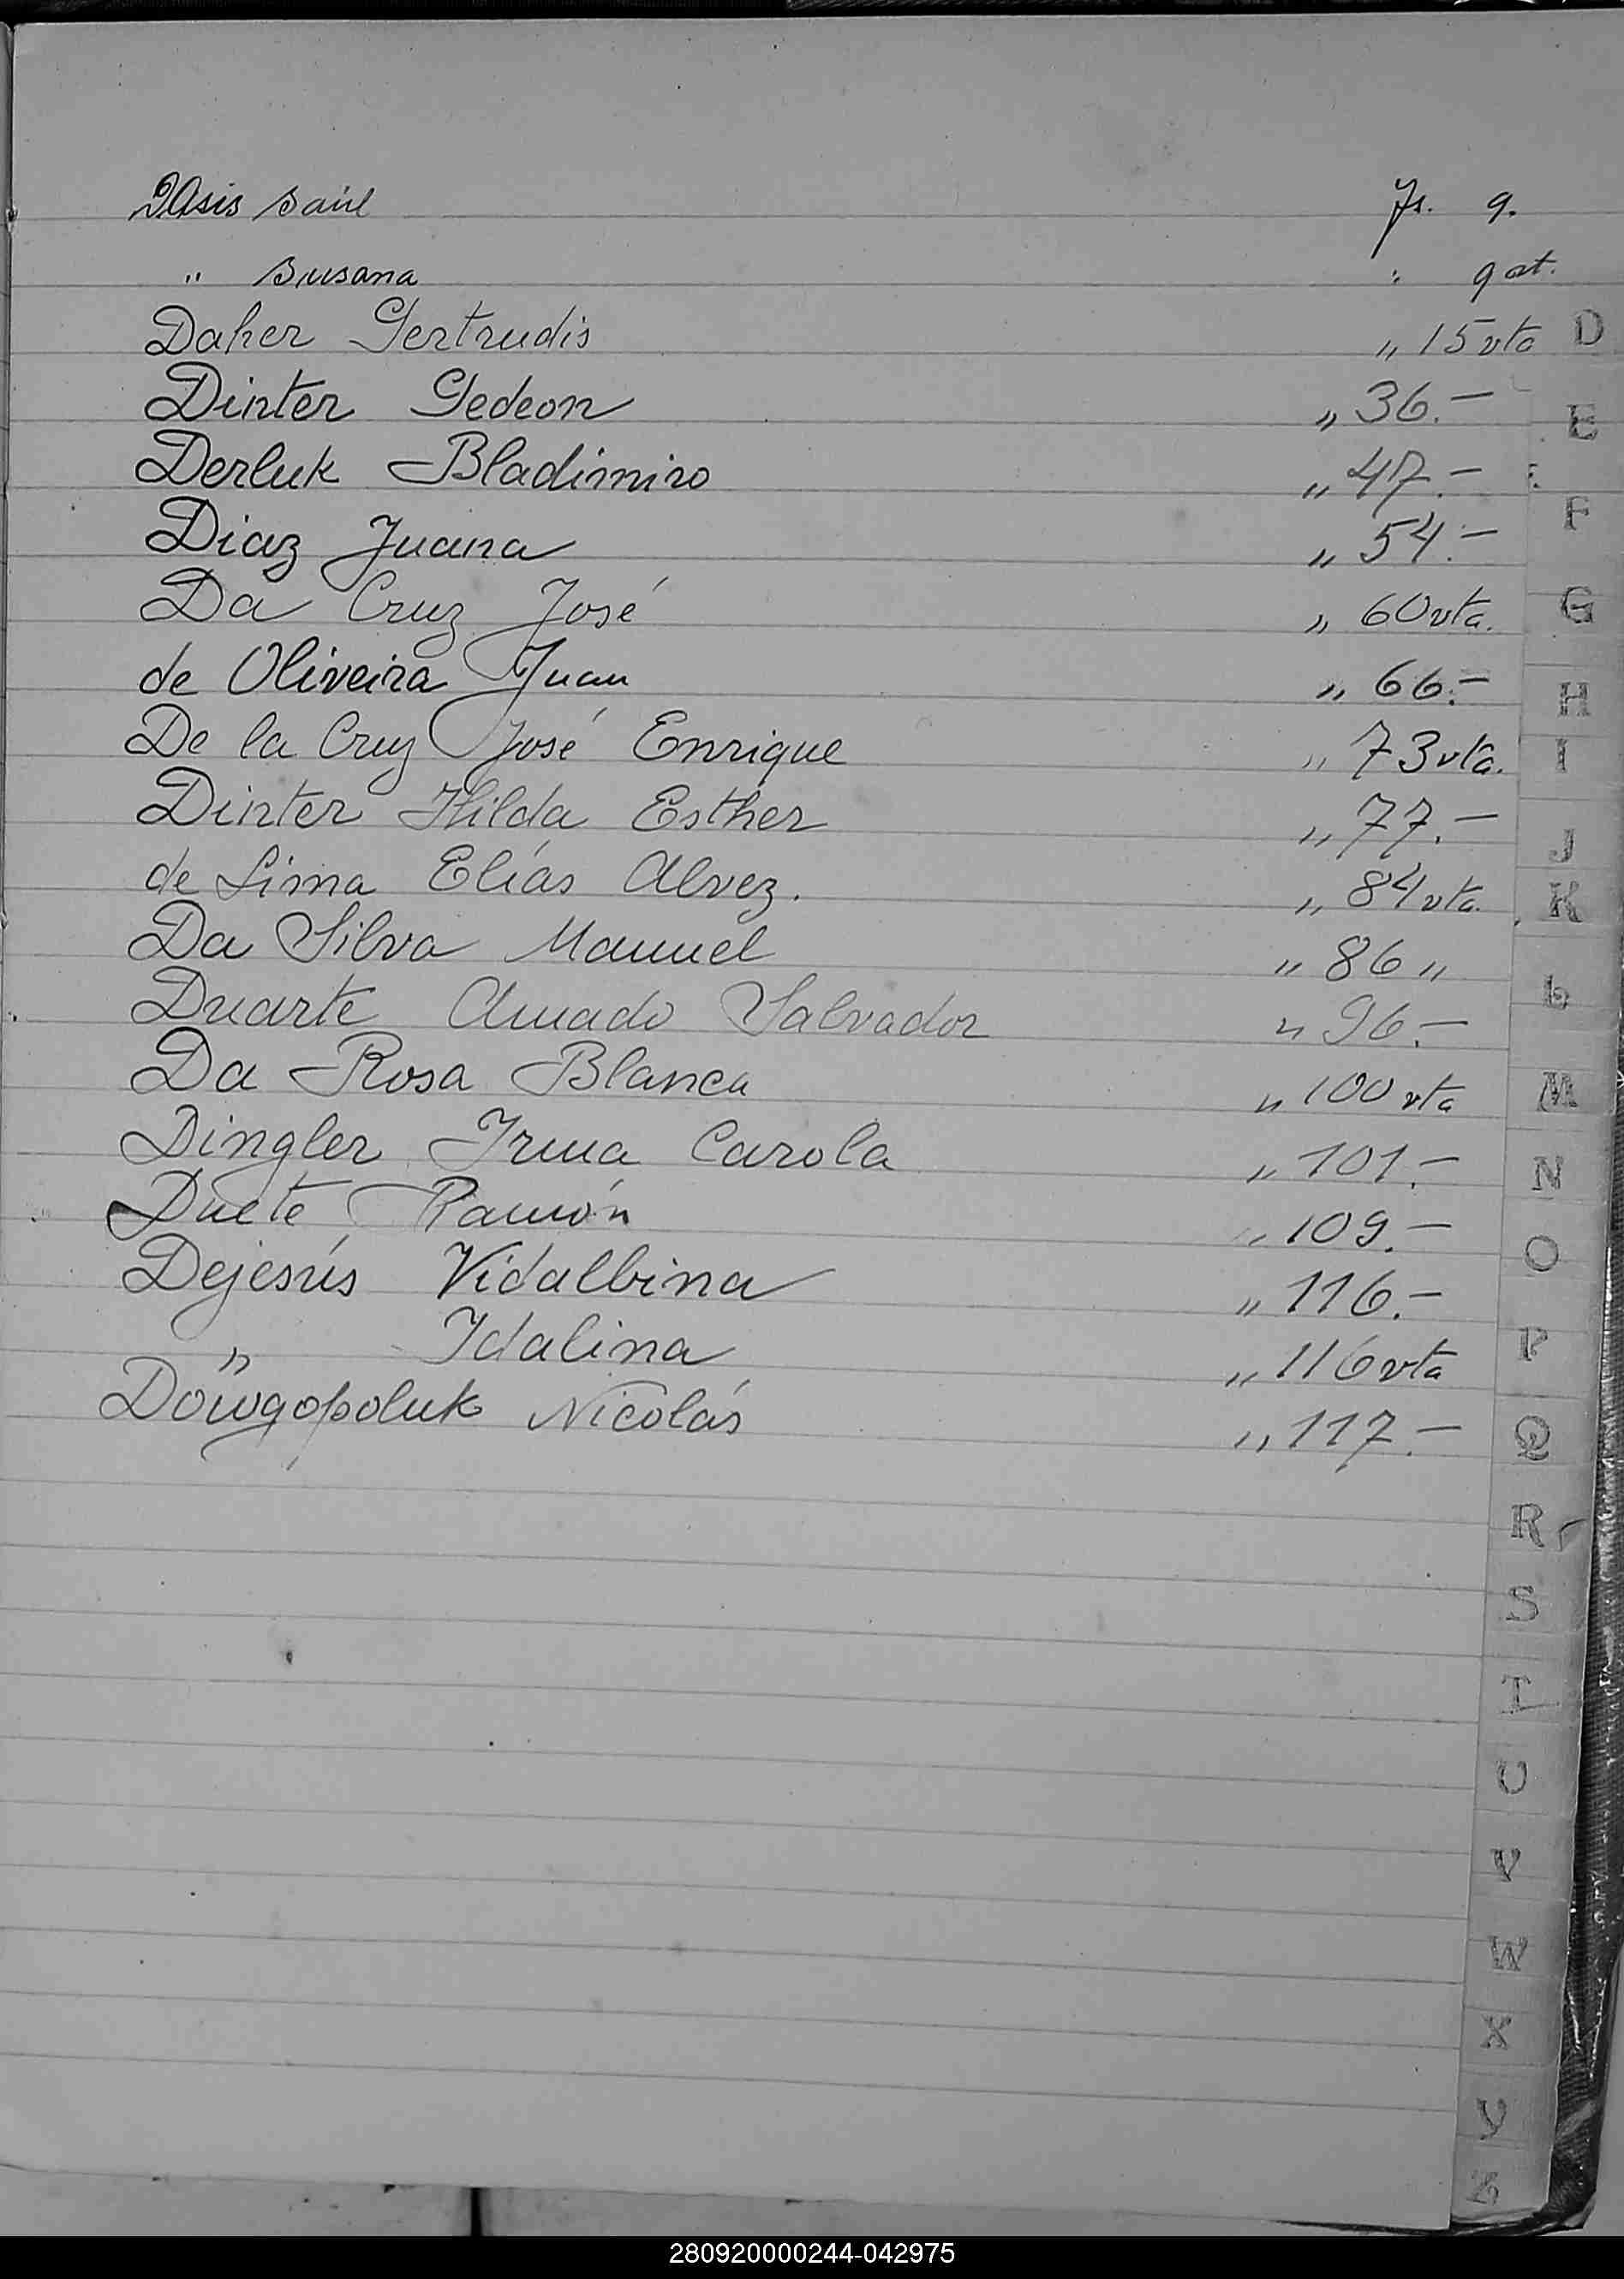 DAsis Saúl Fs. 9.
" Susana " 9 vt.
Daher Gertrudis " 15 vta D
Dinter Gedeon " 36.-
E
Derluk Bladimiro " 47.-
F
Diaz Juana " 54.-
Da Cruz José " 60 vta.
G
de Oliveira Juan " 66.-
H
De la Cruz José Enrique " 73 vta.
I
Dinter Hilda Esther " 77.-
J
de Lima Elías Alvez. " 84 vta.
K
Da Silva Manuel " 86 "
L
Duarte Amado Salvador " 96.-
Da Rosa Blanca " 100 vta
M
Dingler Irma Carola " 101.-
N
Duete Ramón " 109.-
O
Dejesús Vidalbina " 116.-
" Idalina " 116 vta
P
Dowgopoluk Nicolás " 117.-
Q
R
S
T
U
V
W
X
Y
Z
280920000244-042975